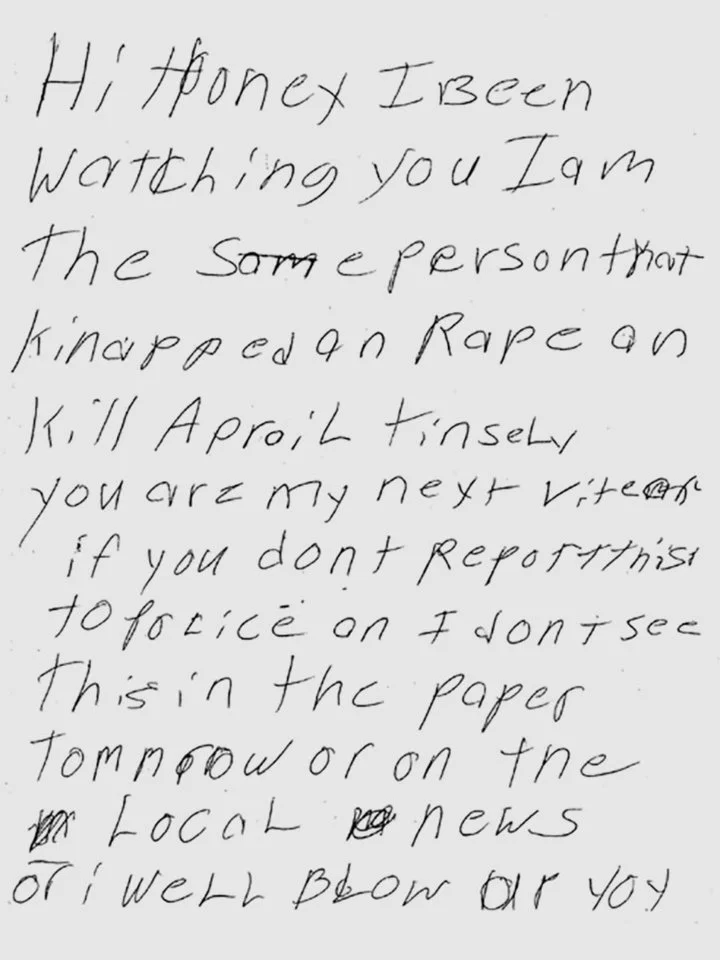 Hi Honey I Been
Watching you I am
The Same person that
kinapped an Rape an
kill Aproil tinsely
you are my next
if you dont Report this
to police an I dont see
This in the paper
Tommorow or on the
Local news
or i well BLow